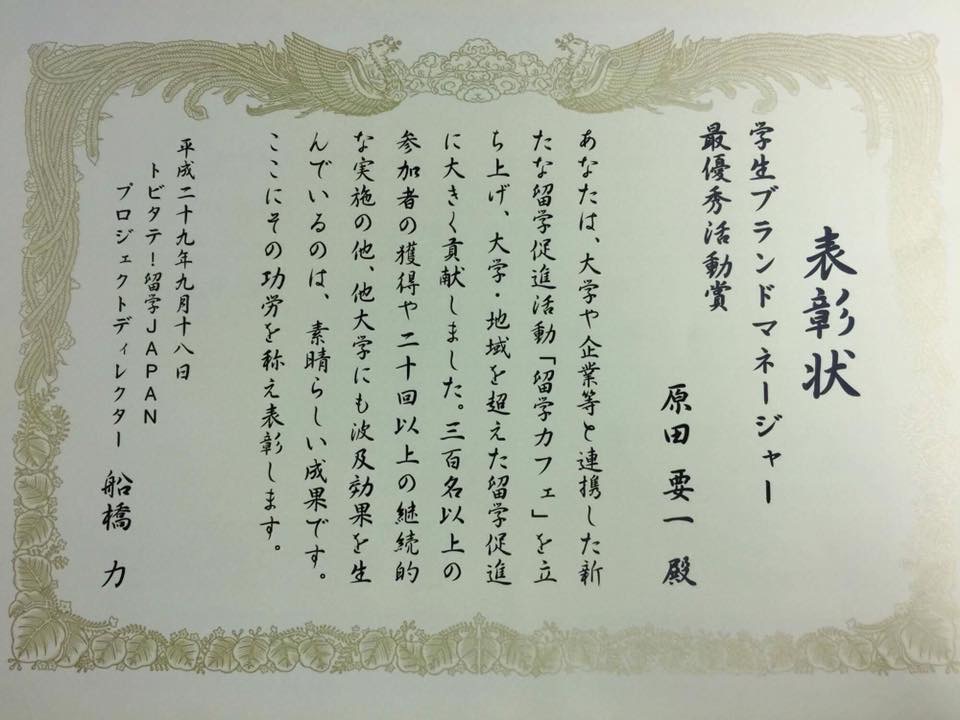 表彰状
学生ブランドマネージャー
最優秀活動賞
原田 要一 殿
あなたは、大学や企業等と連携した新
たな留学促進活動「留学カフェ」を立
ち上げ、大学・地域を超えた留学促進
に大きく貢献しました。三百名以上の
参加者の獲得や二十回以上の継続的
な実施の他、他大学にも波及効果を生
んでいるのは、素晴らしい成果です。
ここにその功労を称え表彰します。
平成二十九年九月十八日
トビタテ!留学JAPAN
プロジェクトディレクター 船橋 力